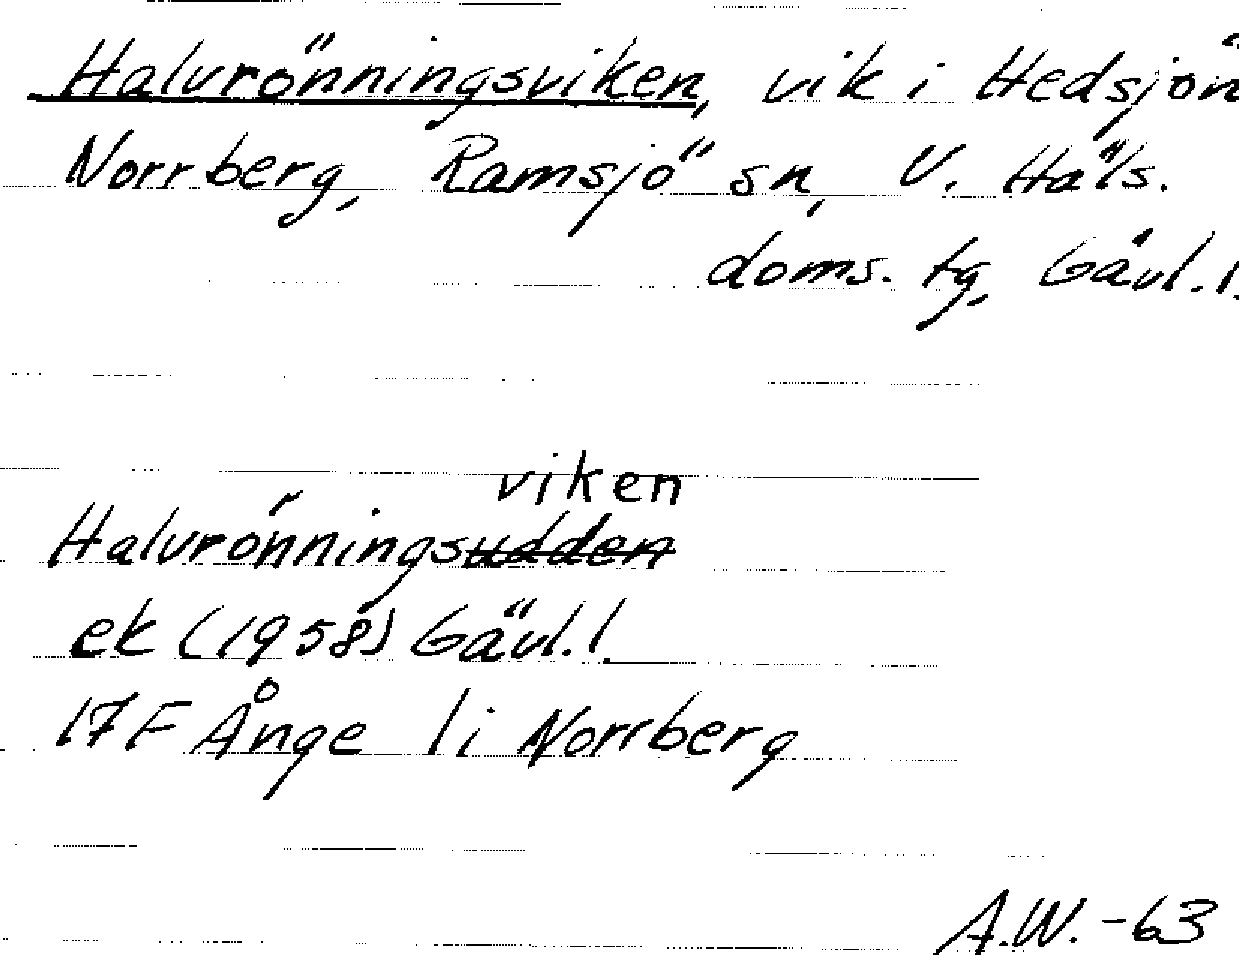 Halvrönningsviken, vik i Hedsjön
Norrberg, Ramsjö sn, V. Häls.
doms. tg, Gävl. l.
viken
Halvrönningsudden
ek (1958) Gävl. l
17F Ånge li Norrberg
A.W. -63